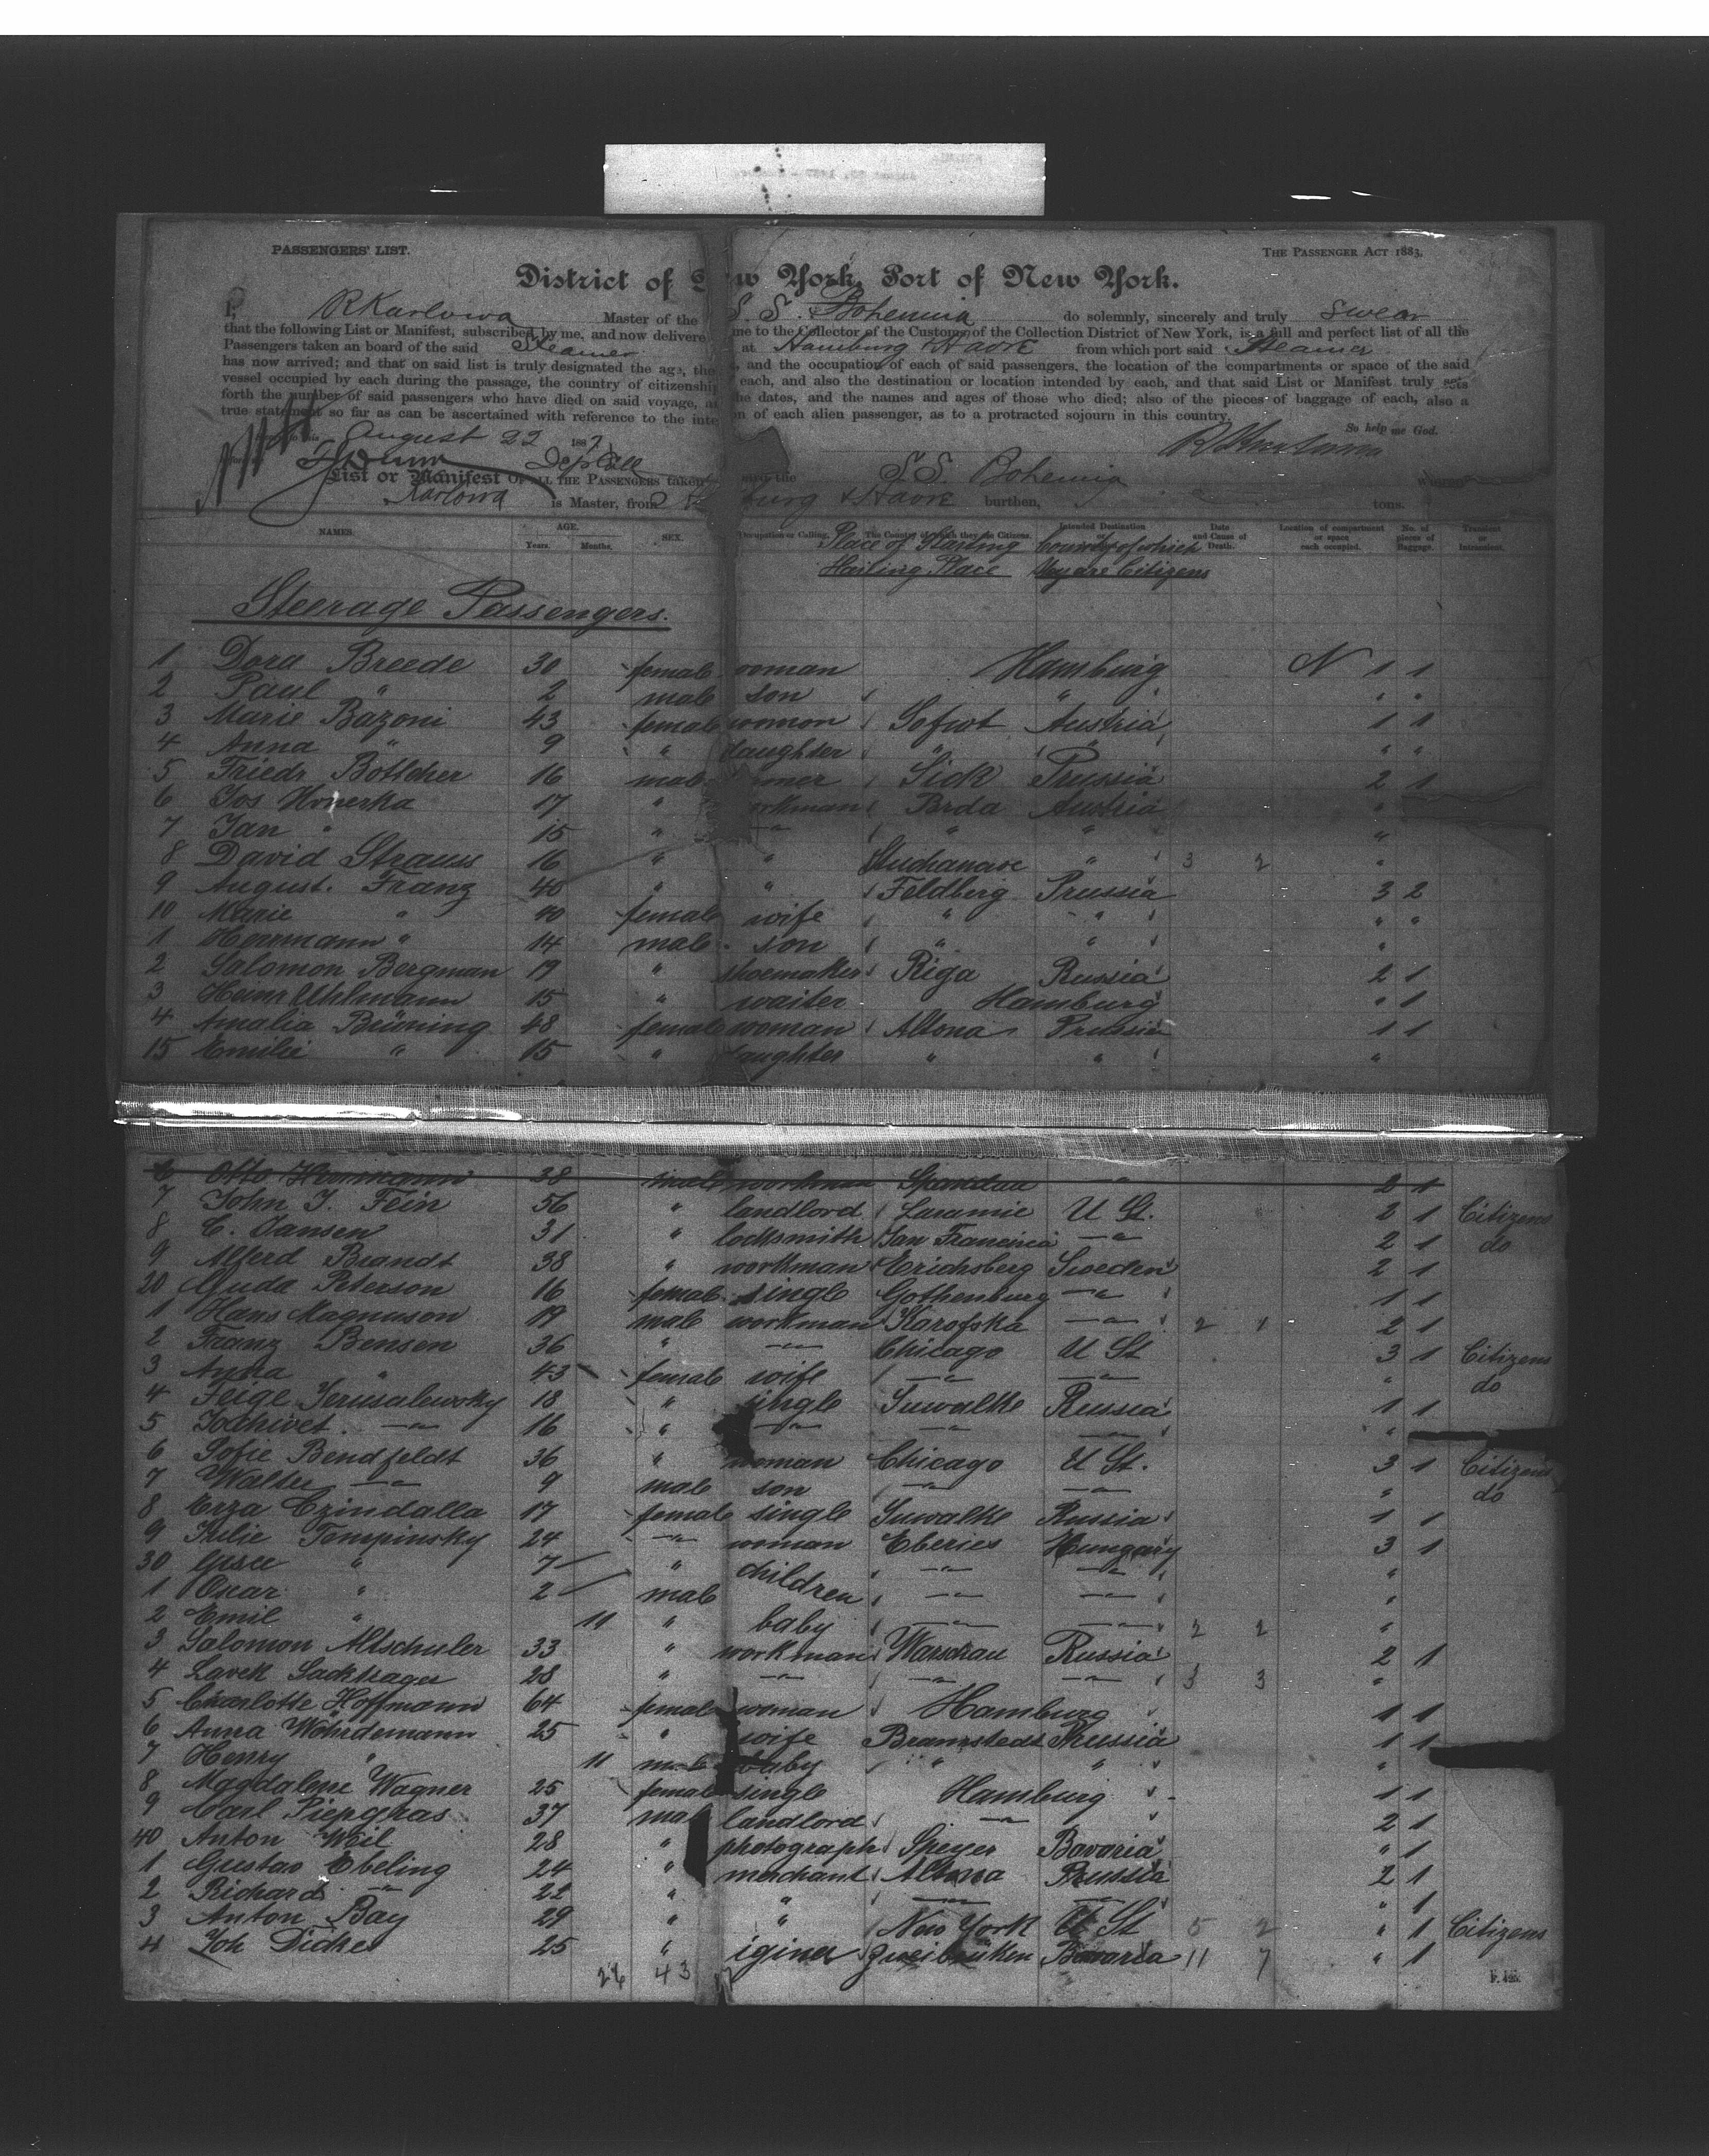 PASSENGERS' LIST.
THE PASSENGER ACT 1883.
District of New York, Port of New York.
I, R Karlowa Master of the S. S. Bohemia do solemnly, sincerely and truly swear
that the following List or Manifest, subscribed by me, and now delivere me to the Collector of the Customs of the Collection District of New York, is a full and perfect list of all the
Passengers taken an board of the said Steamer at Hamburg Havre from which port said Steamer
has now arrived; and that on said list is truly designated the age, the , and the occupation of each of said passengers, the location of the compartments or space of the said
vessel occupied by each during the passage, the country of citizenship each, and also the destination or location intended by each, and that said List or Manifest truly sets
forth the number of said passengers who have died on said voyage, a he dates, and the names and ages of those who died; also of the pieces of baggage of each, also a
true statement so far as can be ascertained with reference to the inte n of each alien passenger, as to a protracted sojourn in this country.
So help me God.
August 22 1887
List or Manifest OF ALL THE PASSENGERS taken the S.S. Bohemia
Karlowa is Master, from burg & Havre burthen, tons.
NAMES. AGE. Years. Months. SEX. Occupation or Calling. The Country of which they are Citizens. Intended Destination Date and Cause of Death. Location of compartment or space each occupied. No. of pieces of Baggage. Transient or
Place of Starting County of which
Hailing Place they are Citizens
Steerage Passengers.
1 Dora Breede 30 female woman Hamburg N 1 1
2 Paul " 2 male son " " "
3 Marie Bazoni 43 female woman Austria 1 1
4 Anna " 9 " daughter " " " "
5 Friedr Böttcher 16 male Sick Prussia 2 1
6 Jos Honerka 17 " workman Brda Austria "
7 Jan " 15 " " " " "
8 David Strauss 16 " " " 3 2 "
9 August. Franz 40 " " Feldberg Prussia 3 2
10 Marie " 40 female wife " " " "
1 Herrmann " 14 male son " " "
2 Salomon Bergman 19 " shoemaker Riga Russia 2 1
3 Heinr Uhlmann 15 " waiter Hamburg " 1
4 Amalia Brüning 48 female woman Altona Prussia 1 1
15 Emilie " 15 " daughter " " "
6 Otto Herrmann 38 male workman Spandau " 2 1
7 John J. Fein 56 " landlord Laramie U St. 2 1 Citizens
8 C. Jansen 31 " locksmith San Francisco " 2 1 do
9 Alferd Brandt 38 " workman Erichsberg Sweden 2 1
20 Guda Peterson 16 female single Gothenburg " 1 1
1 Hans Magnuson 19 male workman Karofska " 2 1 2 1
2 Franz Bensen 36 " " Chicago U St 3 1 Citizens
3 Anna " 43 female wife " " " do
4 Feige Jerusalewsky 18 " single Suwalke Russia 1 1
5 Jochivet " 16 " " " " "
6 Sofie Bendfeldt 36 " woman Chicago U St. 3 1 Citizens
7 Walter " 9 male son " " " do
8 Erza Czindalla 17 female single Suwalke Russia 1 1
9 Julie Tempinsky 24 " woman Eberies Hungary 3 1
30 " 7 " children " " "
1 Oscar " 2 male " " "
2 Emil " 11 " baby " " 2 2 "
3 Salomon Altschuler 33 " workman Warschau Russia 2 1
4 Lavek Sackhager 28 " " " " 3 3 "
5 Charlotte Hoffmann 64 female woman Hamburg 1 1
6 Anna Wohrdemann 25 " wife Bramstedt Prussia 1 1
7 Henry " 11 male baby " " "
8 Magdalene Wagner 25 female single Hamburg 1 1
9 Carl Piepghas 37 male landlord " 2 1
40 Anton Weil 28 " photograph Speyer Bavaria " 1
1 Gustav Ebeling 24 " merchant Altona Prussia 2 1
2 Richard " 22 " " " " " 1
3 Anton Bay 29 " " New York U St 5 2 " 1 Citizens
4 Joh Dicker 25 " Zweibrüken Bavaria 11 7 " 1
26 43